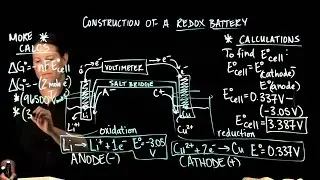 CONSTRUCTION OF A REDOX BATTERY
MORE *
CALCS
ΔG°=-nFE°cell
ΔG°=-(2 mole e⁻)
*(96500
*(3.
e⁻→ VOLTMETER →e⁻
SALT BRIDGE
A⁻ C⁺
Li⁺
Cu²⁺
oxidation
reduction
Li → Li⁺+1e⁻ E°=-3.05 V
ANODE(-)
Cu²⁺+2e⁻→Cu E°=0.337V
CATHODE(+)
* CALCULATIONS
To find E°cell:
E°cell=E°(cathode)-
E°(anode)
E°cell=0.337V-
(-3.05V)
E°cell=3.387V